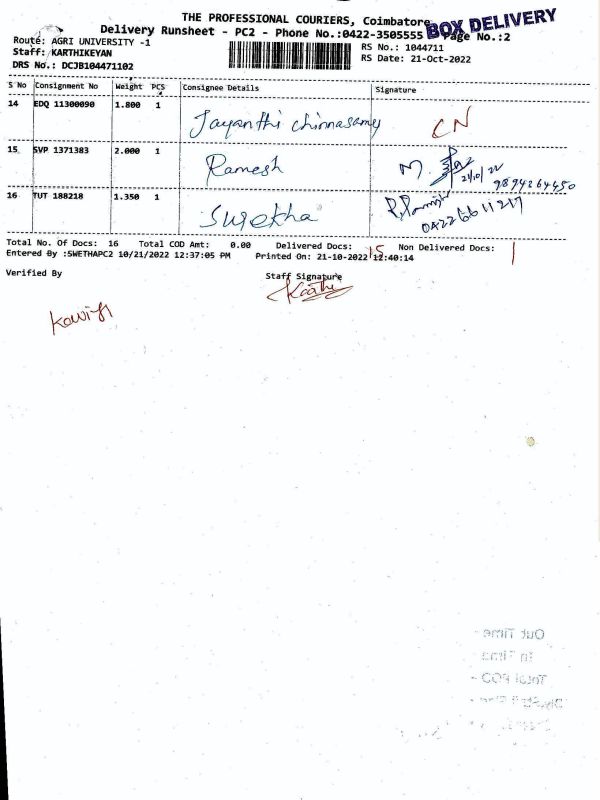 THE PROFESSIONAL COURIERS, Coimbatore
BOX DELIVERY
Delivery Runsheet - PC2 - Phone No.:0422-3505555 Page No.:2
Route: AGRI UNIVERSITY -1 RS No.: 1044711
Staff: KARTHIKEYAN RS Date: 21-Oct-2022
DRS No.: DCJB104471102
S No Consignment No Weight PCS Consignee Details Signature
14 EDQ 11300090 1.800 1 Jayanthi Chinnasamy CN
15 SVP 1371383 2.000 1 Ramesh M. 21/10/22
9894264450
16 TUT 188218 1.350 1 Surekha
0422 66 11 217
Total No. Of Docs: 16 Total COD Amt: 0.00 Delivered Docs: 15 Non Delivered Docs: 1
Entered By :SWETHAPC2 10/21/2022 12:37:05 PM Printed On: 21-10-2022 12:40:14
Verified By Staff Signature
Karthi
Out Time -
In Time -
Total POD -